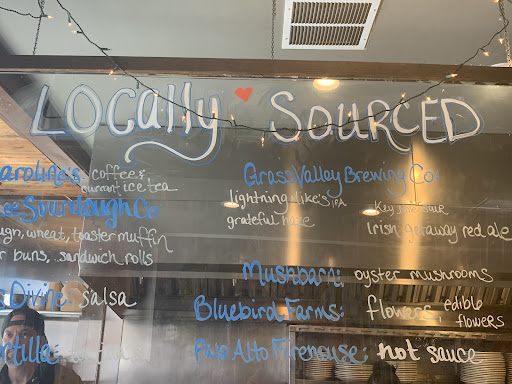 Locally Sourced
aroline's coffee &
currant ice tea
ee Sourdough Co
ugn, wheat, toaster muffin
r buns, sandwich rolls
Divine: salsa
rtilla:
Grass Valley Brewing Co.
lightning Mike's IPA
grateful haze
Key lime sour
Irish getaway red ale
Mushbarn: oyster mushrooms
Bluebird Farms: flowers, edible
flowers
Palo Alto Firehouse: hot sauce